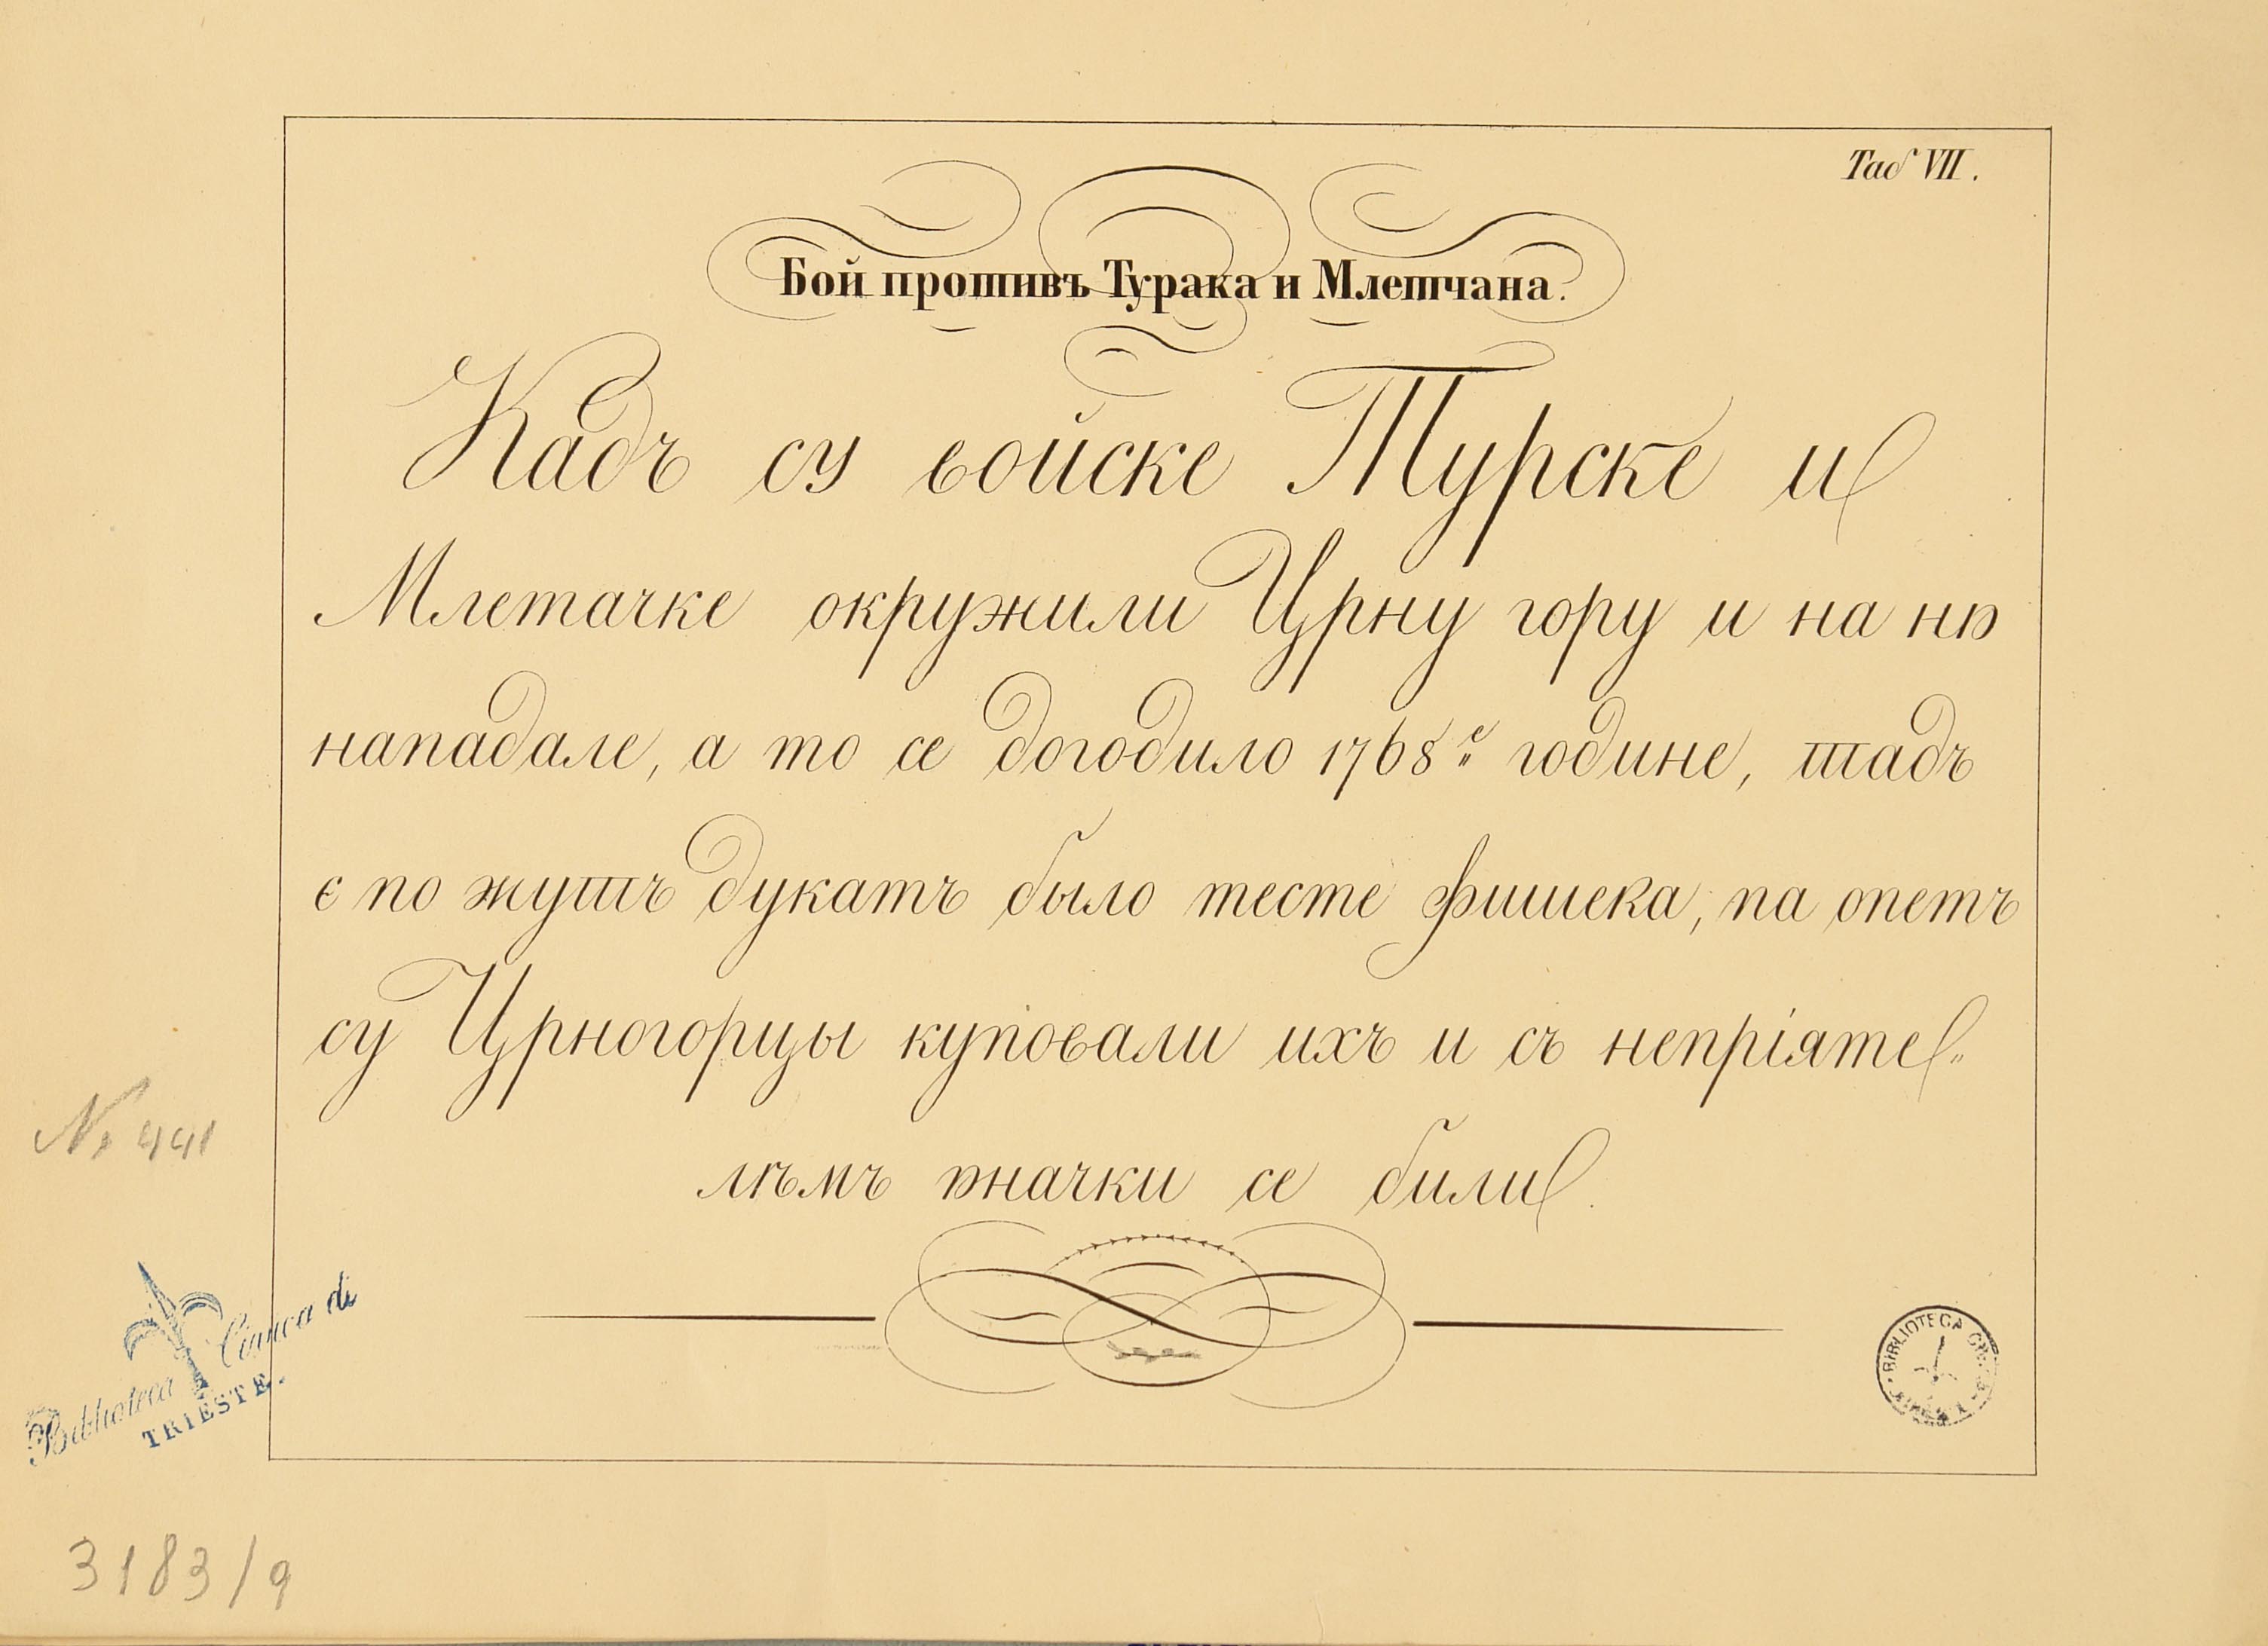 Таб VII.
Бой противъ Турака и Млетчана.
Кадъ су войске Турске и
Млетачке окружили Црну гору и на ню
нападале, а то се догодило 1768е године, тадъ
є по жутъ дукатъ было тесте фишека, па опетъ
су Црногорцы куповали ихъ и съ непріяте„
лѣмъ юначки се били.
№ 441
Biblioteca Civica di
TRIESTE.
BIBLIOTECA
3183/9